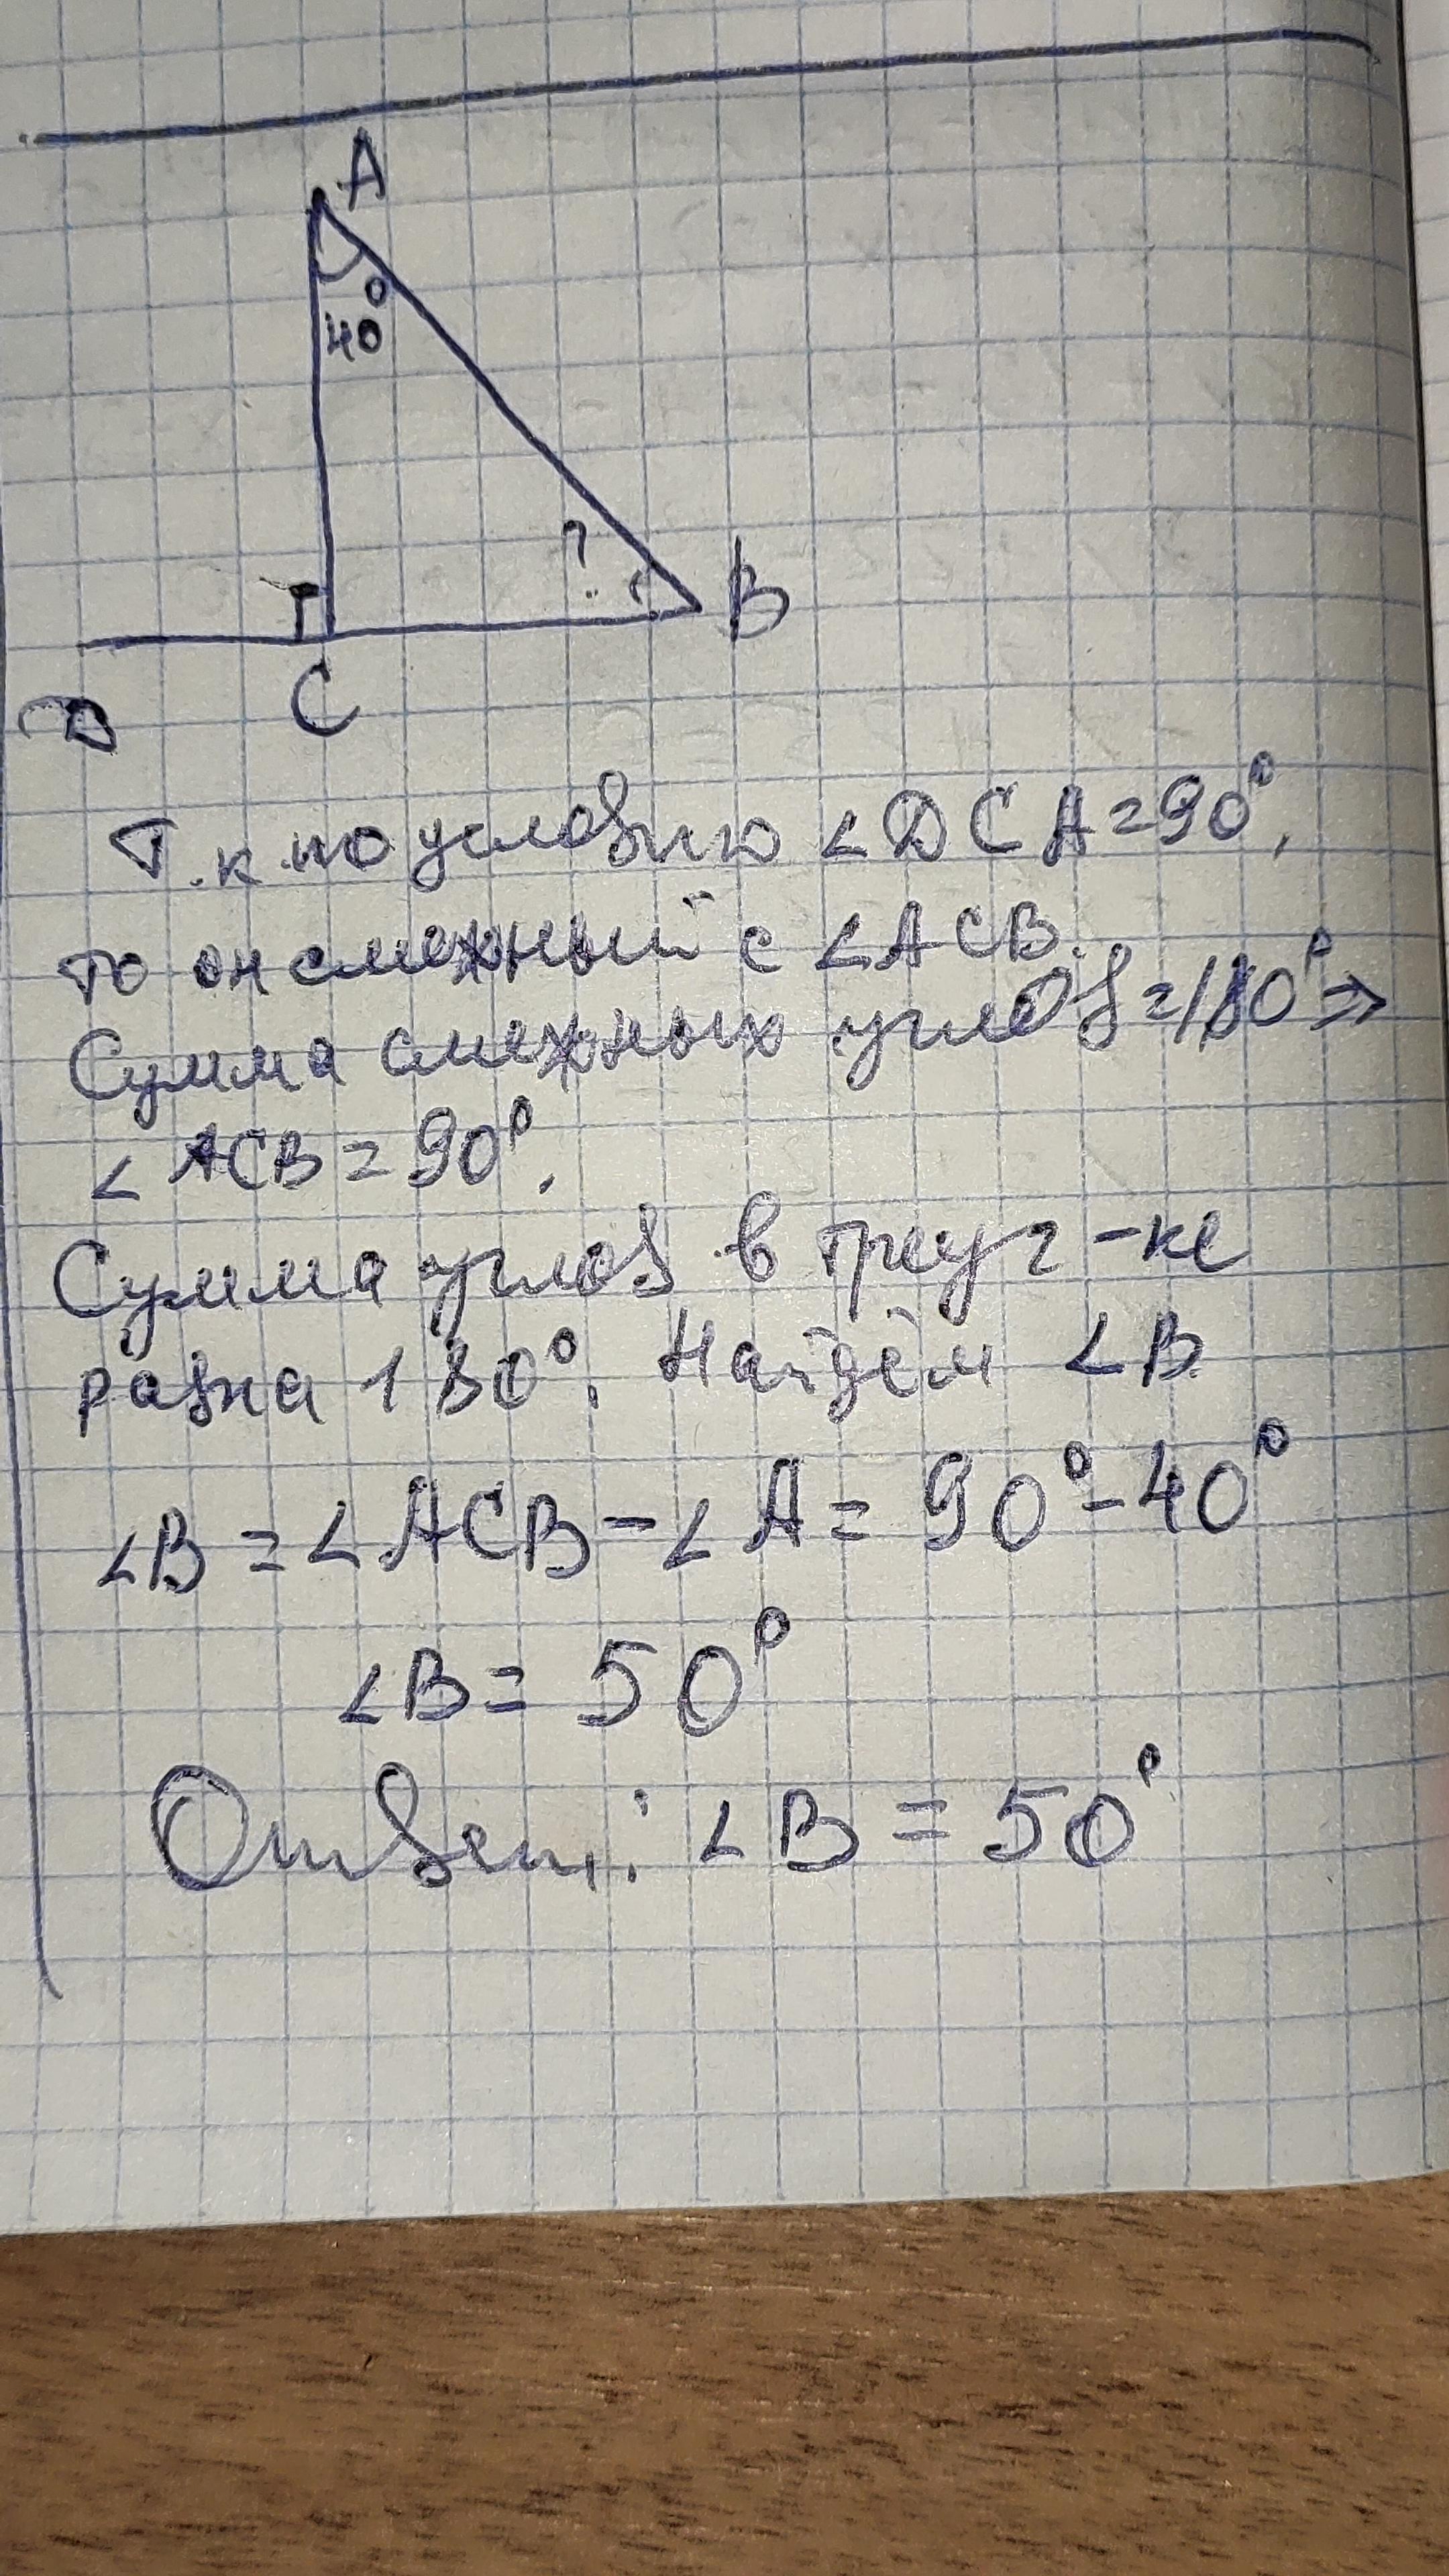 A
40°
?
B
C
D
Т.к по условию ∠DCA=90°,
то он смежный с ∠ACB.
Сумма смежных углов=180°⇒
∠ACB=90°.
Сумма углов в треуг-ке
равна 180°. Найдём ∠B.
∠B=∠ACB-∠A=90°-40°
∠B=50°
Ответ: ∠B=50°